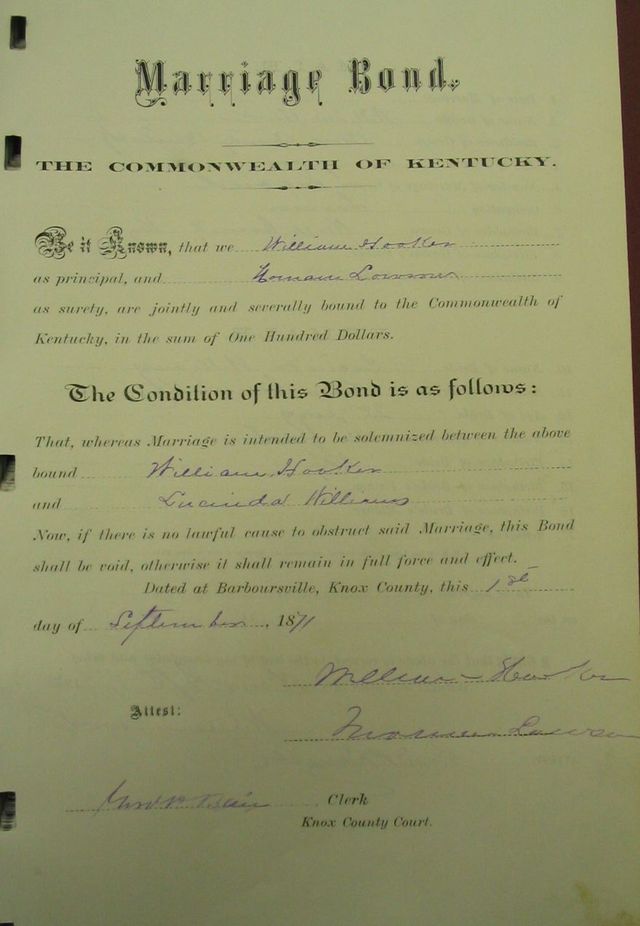 Marriage Bond.
THE COMMONWEALTH OF KENTUCKY.
Be it Known, that we William Hooker
as principal, and
as surety, are jointly and severally bound to the Commonwealth of
Kentucky, in the sum of One Hundred Dollars.
The Condition of this Bond is as follows:
That, whereas Marriage is intended to be solemnized between the above
bound William Hooker
and Lucinda Williams
Now, if there is no lawful cause to obstruct said Marriage, this Bond
shall be void, otherwise it shall remain in full force and effect.
Dated at Barboursville, Knox County, this 1st
day of September, 1871
William Hooker
Attest:
Clerk
Knox County Court.